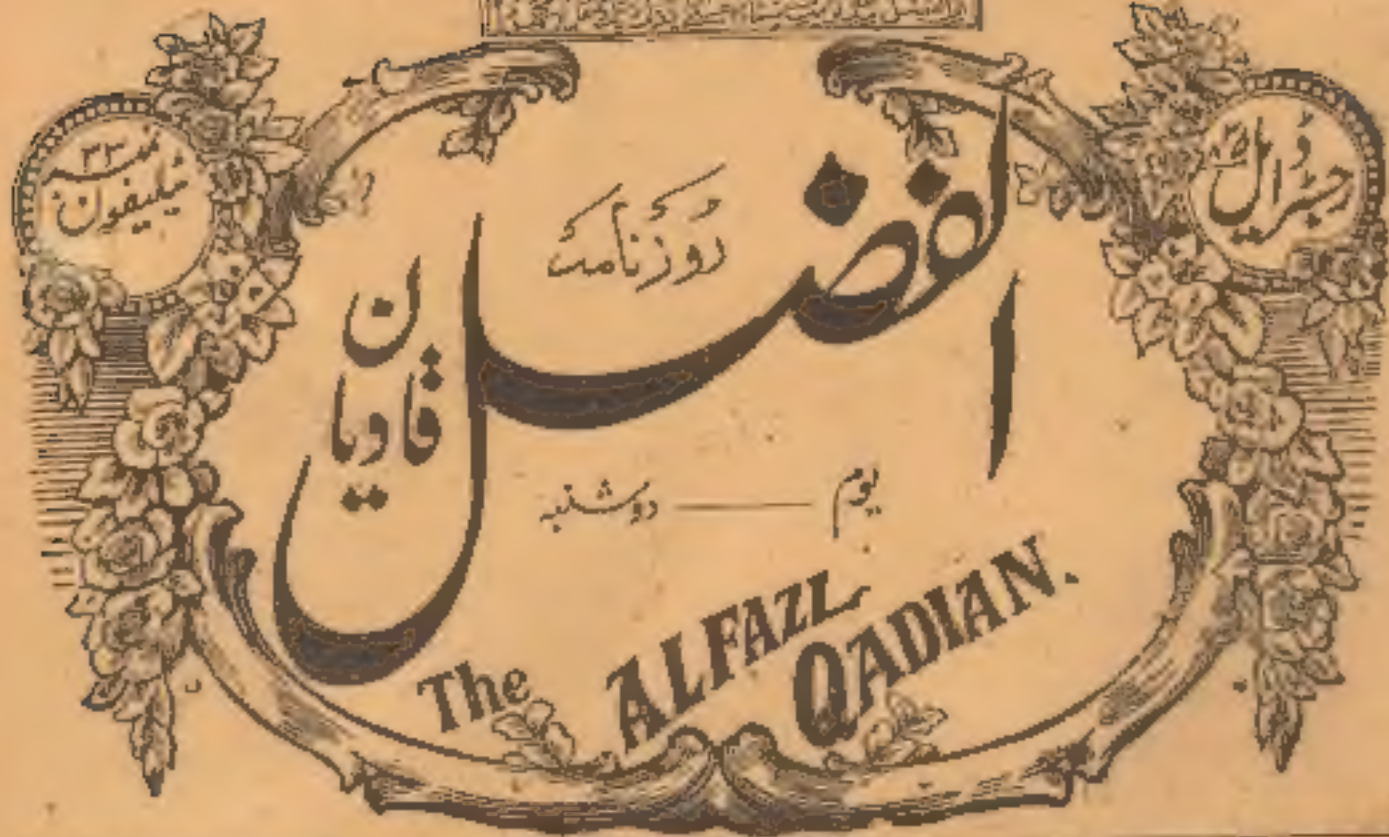 رجسٹرڈ ایل
ٹیلیفون نمبر ۳۳
روزنامہ
الفضل
قادیان
یوم — دوشنبہ
The ALFAZL QADIAN.